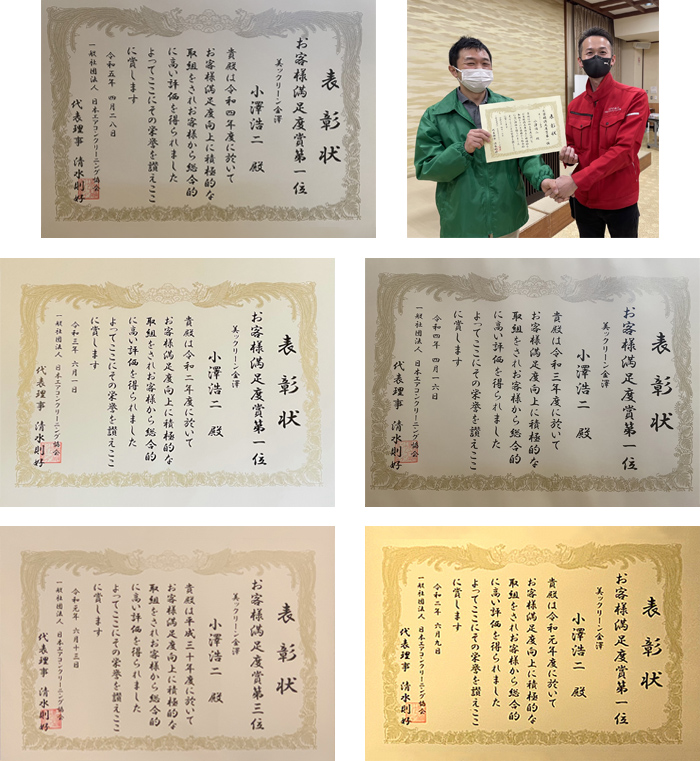 表彰状
お客様満足度賞第一位
美ックリーン金澤
小澤浩二 殿
貴殿は令和四年度に於いて
お客様満足度向上に積極的な
取組をされお客様から総合的
に高い評価を得られました
よってここにその栄誉を讃えここ
に賞します
令和五年 四月二八日
一般社団法人 日本エアコンクリーニング協会
代表理事 清水則好
表彰状
表彰状
お客様満足度賞第一位
美ックリーン金澤
小澤浩二 殿
貴殿は令和二年度に於いて
お客様満足度向上に積極的な
取組をされお客様から総合的
に高い評価を得られました
よってここにその栄誉を讃えここ
に賞します
令和三年 六月一日
一般社団法人 日本エアコンクリーニング協会
代表理事 清水則好
表彰状
お客様満足度賞第一位
美ックリーン金澤
小澤浩二 殿
貴殿は令和三年度に於いて
お客様満足度向上に積極的な
取組をされお客様から総合的
に高い評価を得られました
よってここにその栄誉を讃えここ
に賞します
令和四年 四月一六日
一般社団法人 日本エアコンクリーニング協会
代表理事 清水則好
表彰状
お客様満足度賞第三位
美ックリーン金澤
小澤浩二 殿
貴殿は平成三十年度に於いて
お客様満足度向上に積極的な
取組をされお客様から総合的
に高い評価を得られました
よってここにその栄誉を讃えここ
に賞します
令和元年 六月十三日
一般社団法人 日本エアコンクリーニング協会
代表理事 清水則好
表彰状
お客様満足度賞第一位
美ックリーン金澤
小澤浩二 殿
貴殿は令和元年度に於いて
お客様満足度向上に積極的な
取組をされお客様から総合的
に高い評価を得られました
よってここにその栄誉を讃えここ
に賞します
令和二年 六月九日
一般社団法人 日本エアコンクリーニング協会
代表理事 清水則好